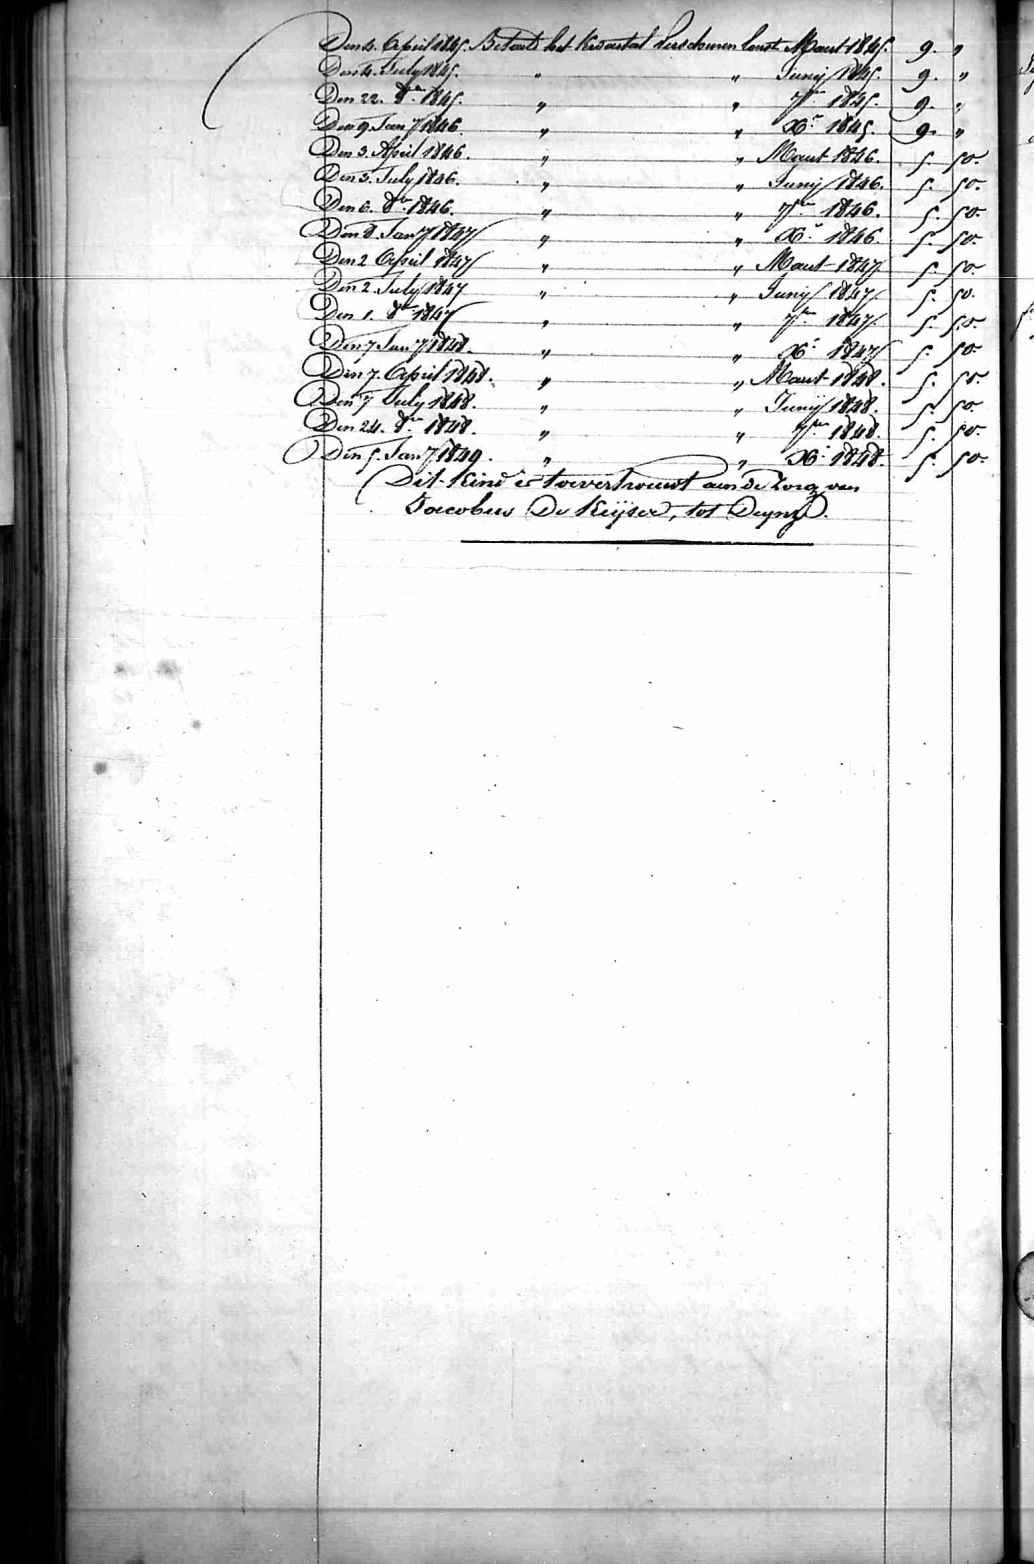 Den 4. April 1845. Betaald het Kwartal verschenen laast Maart 1845. 9. "
Den 4. July 1845. " " Junij 1845. 9. "
Den 22. 8br 1845. " " 7br 1845. 9. "
Den 9. Jany 1846. " " Xbr 1845. 9. "
Den 3. April 1846. " " Maart 1846. 5. 50.
Den 3. July 1846. " " Junij 1846. 5. 50.
Den 6. 8br 1846. " " 7br 1846. 5. 50.
Den 8. Jany 1847 " " Xbr 1846. 5. 50.
Den 2 April 1847 " " Maart 1847. 5. 50
Den 2. July 1847 " " Junij 1847. 5. 50.
Den 1. 8br 1847 " " 7br 1847. 5. 50.
Den 7 Jany 1848. " " Xbr 1847 5. 50.
Den 7. April 1848. " " Maart 1848. 5. 50.
Den 7 July 1848. " " Junij 1848. 5. 50.
Den 24. 8br 1848. " " 7br 1848. 5. 50.
Den 5. Jany 1849. " " Xbr 1848. 5. 50.
Dit Kind is toevertrouwt aen de Zorg van
Jacobus De Keijser, tot Deynze.